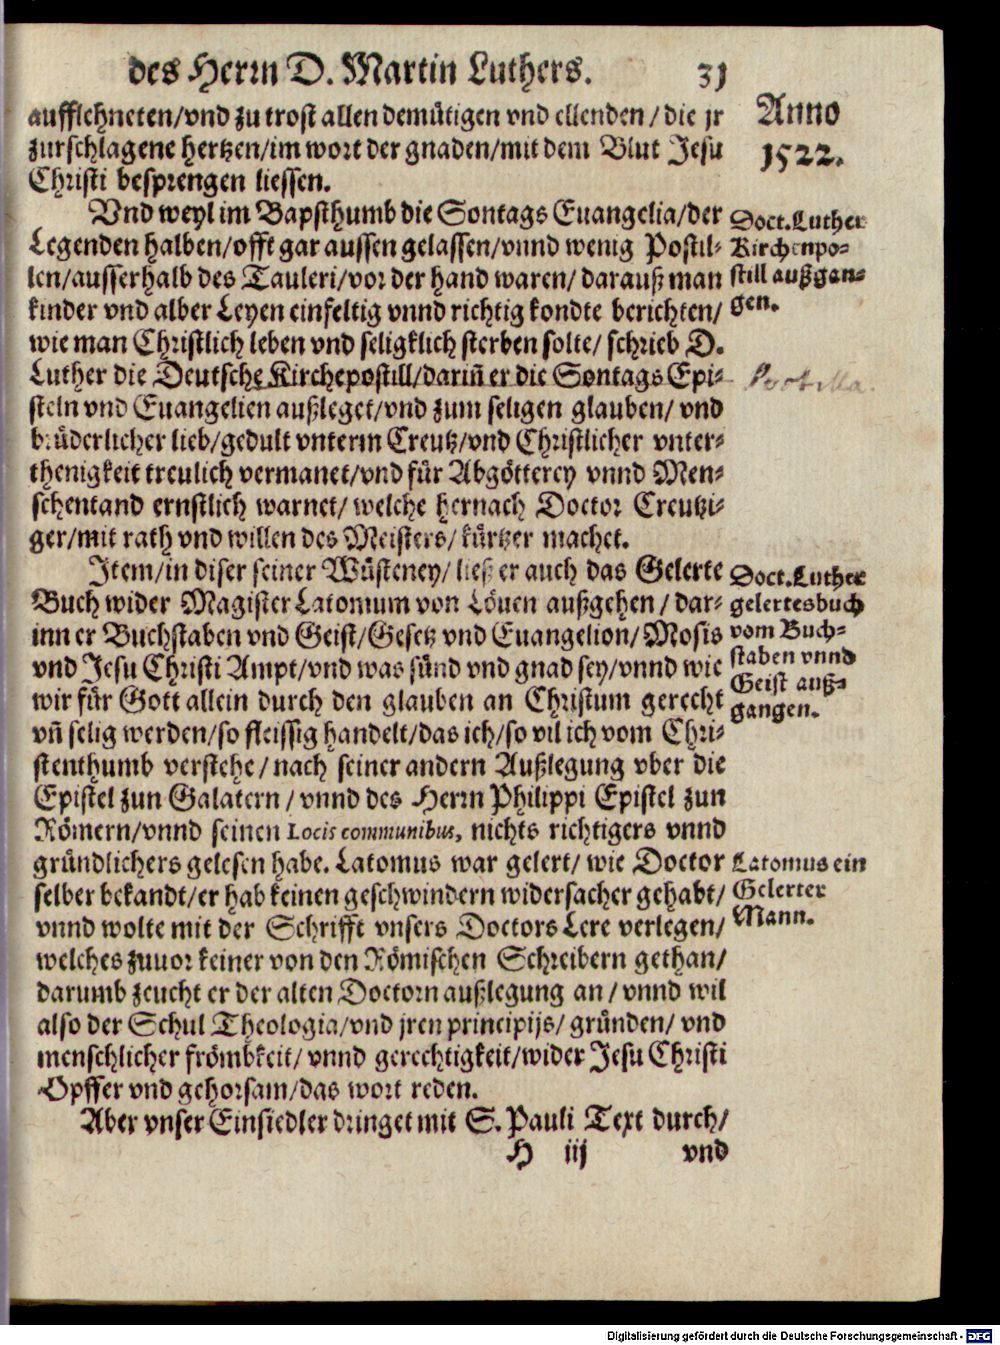 des Herrn D. Martin Luthers. 31
aufflehneten/vnd zu trost allen demütigen vnd ellenden/die jr
zurschlagene hertzen/im wort der gnaden/mit dem Blut Jesu
Christi besprengen liessen.
Vnd weyl im Bapsthumb die Sontags Euangelia/der
Legenden halben/offt gar aussen gelassen/vnnd wenig Postil-
len/ausserhalb des Tauleri/vor der hand waren/darauß man
kinder vnd alber Leyen einfeltig vnnd richtig kondte berichten/
wie man Christlich leben vnd seligklich sterben solte/schrieb D.
Luther die Deutsche Kirchepostill/dariñ er die Sontags Epi-
steln vnd Euangelien außleget/vnd zum seligen glauben/vnd
brüderlicher lieb/gedult vnterm Creutz/vnd Christlicher vnter-
thenigkeit treulich vermanet/vnd für Abgötterey vnnd Men-
schentand ernstlich warnet/welche hernach Doctor Creutzi-
ger/mit rath vnd willen des Meisters/kürtzer machet.
Item/in diser seiner Wüsteney/ließ er auch das Gelerte
Buch wider Magister Latomum von Löuen außgehen/dar-
inn er Buchstaben vnd Geist/Gesetz vnd Euangelion/Mosis
vnd Jesu Christi Ampt/vnd was sünd vnd gnad sey/vnnd wie
wir für Gott allein durch den glauben an Christum gerecht
vñ selig werden/so fleissig handelt/das ich/so vil ich vom Chri-
stenthumb verstehe/nach seiner andern Außlegung vber die
Epistel zun Galatern/vnnd des Herrn Philippi Epistel zun
Römern/vnnd seinen Locis communibus, nichts richtigers vnnd
gründlichers gelesen habe. Latomus war gelert/wie Doctor
selber bekandt/er hab keinen geschwindern widersacher gehabt/
vnnd wolte mit der Schrifft vnsers Doctors Lere verlegen/
welches zuuor keiner von den Römischen Schreibern gethan/
darumb zeucht er der alten Doctorn außlegung an/vnnd wil
also der Schul Theologia/vnd jren principijs/gründen/vnd
menschlicher frömbkeit/vnnd gerechtigkeit/wider Jesu Christi
Opffer vnd gehorsam/das wort reden.
Aber vnser Einsiedler dringet mit S. Pauli Text durch/
H iij vnd
Anno
1522.
Doct. Luther
Kirchenpo-
still außgan-
gen.
Postilla.
Doct. Luther
gelertes buch
vom Buch-
staben vnnd
Geist auß-
gangen.
Latomus ein
Gelerter
Mann.
Digitalisierung gefördert durch die Deutsche Forschungsgemeinschaft - DFG